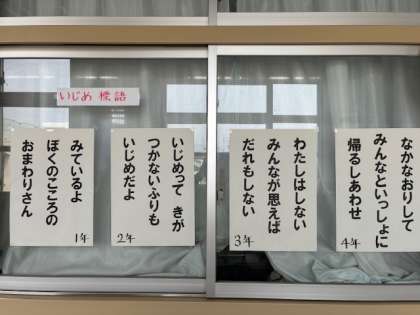 いじめ 標語
みているよ
ぼくのこころの
おまわりさん
1年
いじめって きが
つかないふりも
いじめだよ
2年
わたしはしない
みんなが思えば
だれもしない
3年
なかなおりして
みんなといっしょに
帰るしあわせ
4年